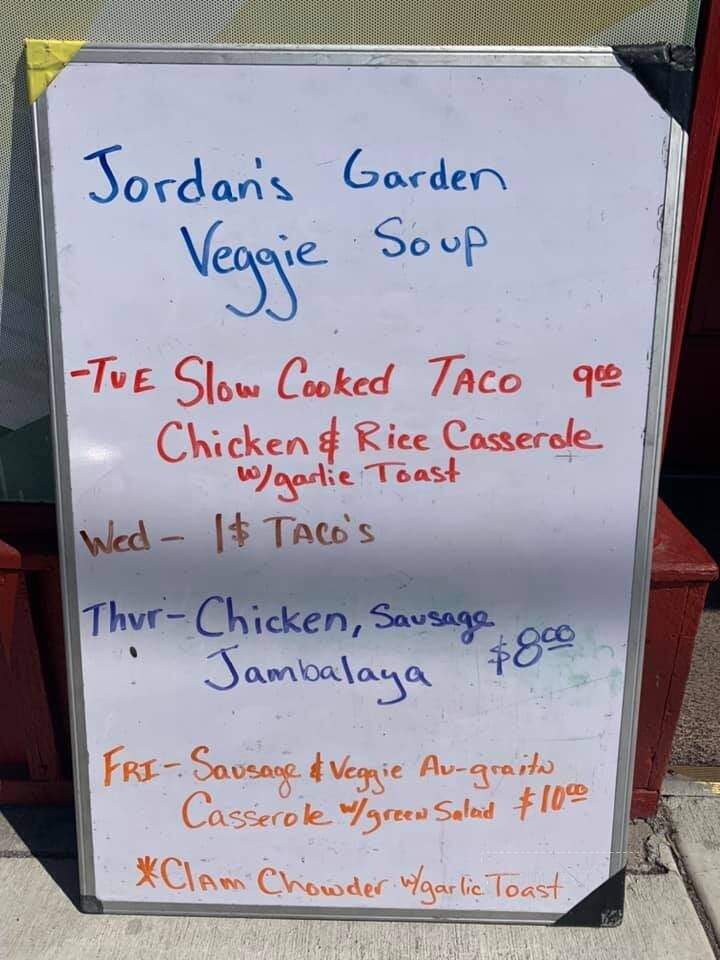 Jordan's Garden
Veggie Soup
-TUE Slow Cooked TACO 9⁰⁰
Chicken & Rice Casserole
w/garlic Toast
Wed - 1$ TACO'S
Thur- Chicken, Sausage
Jambalaya $8⁰⁰
FRI - Sausage & Veggie Au-graitn
Casserole w/green Salad $10⁰⁰
*Clam Chowder w/garlic Toast